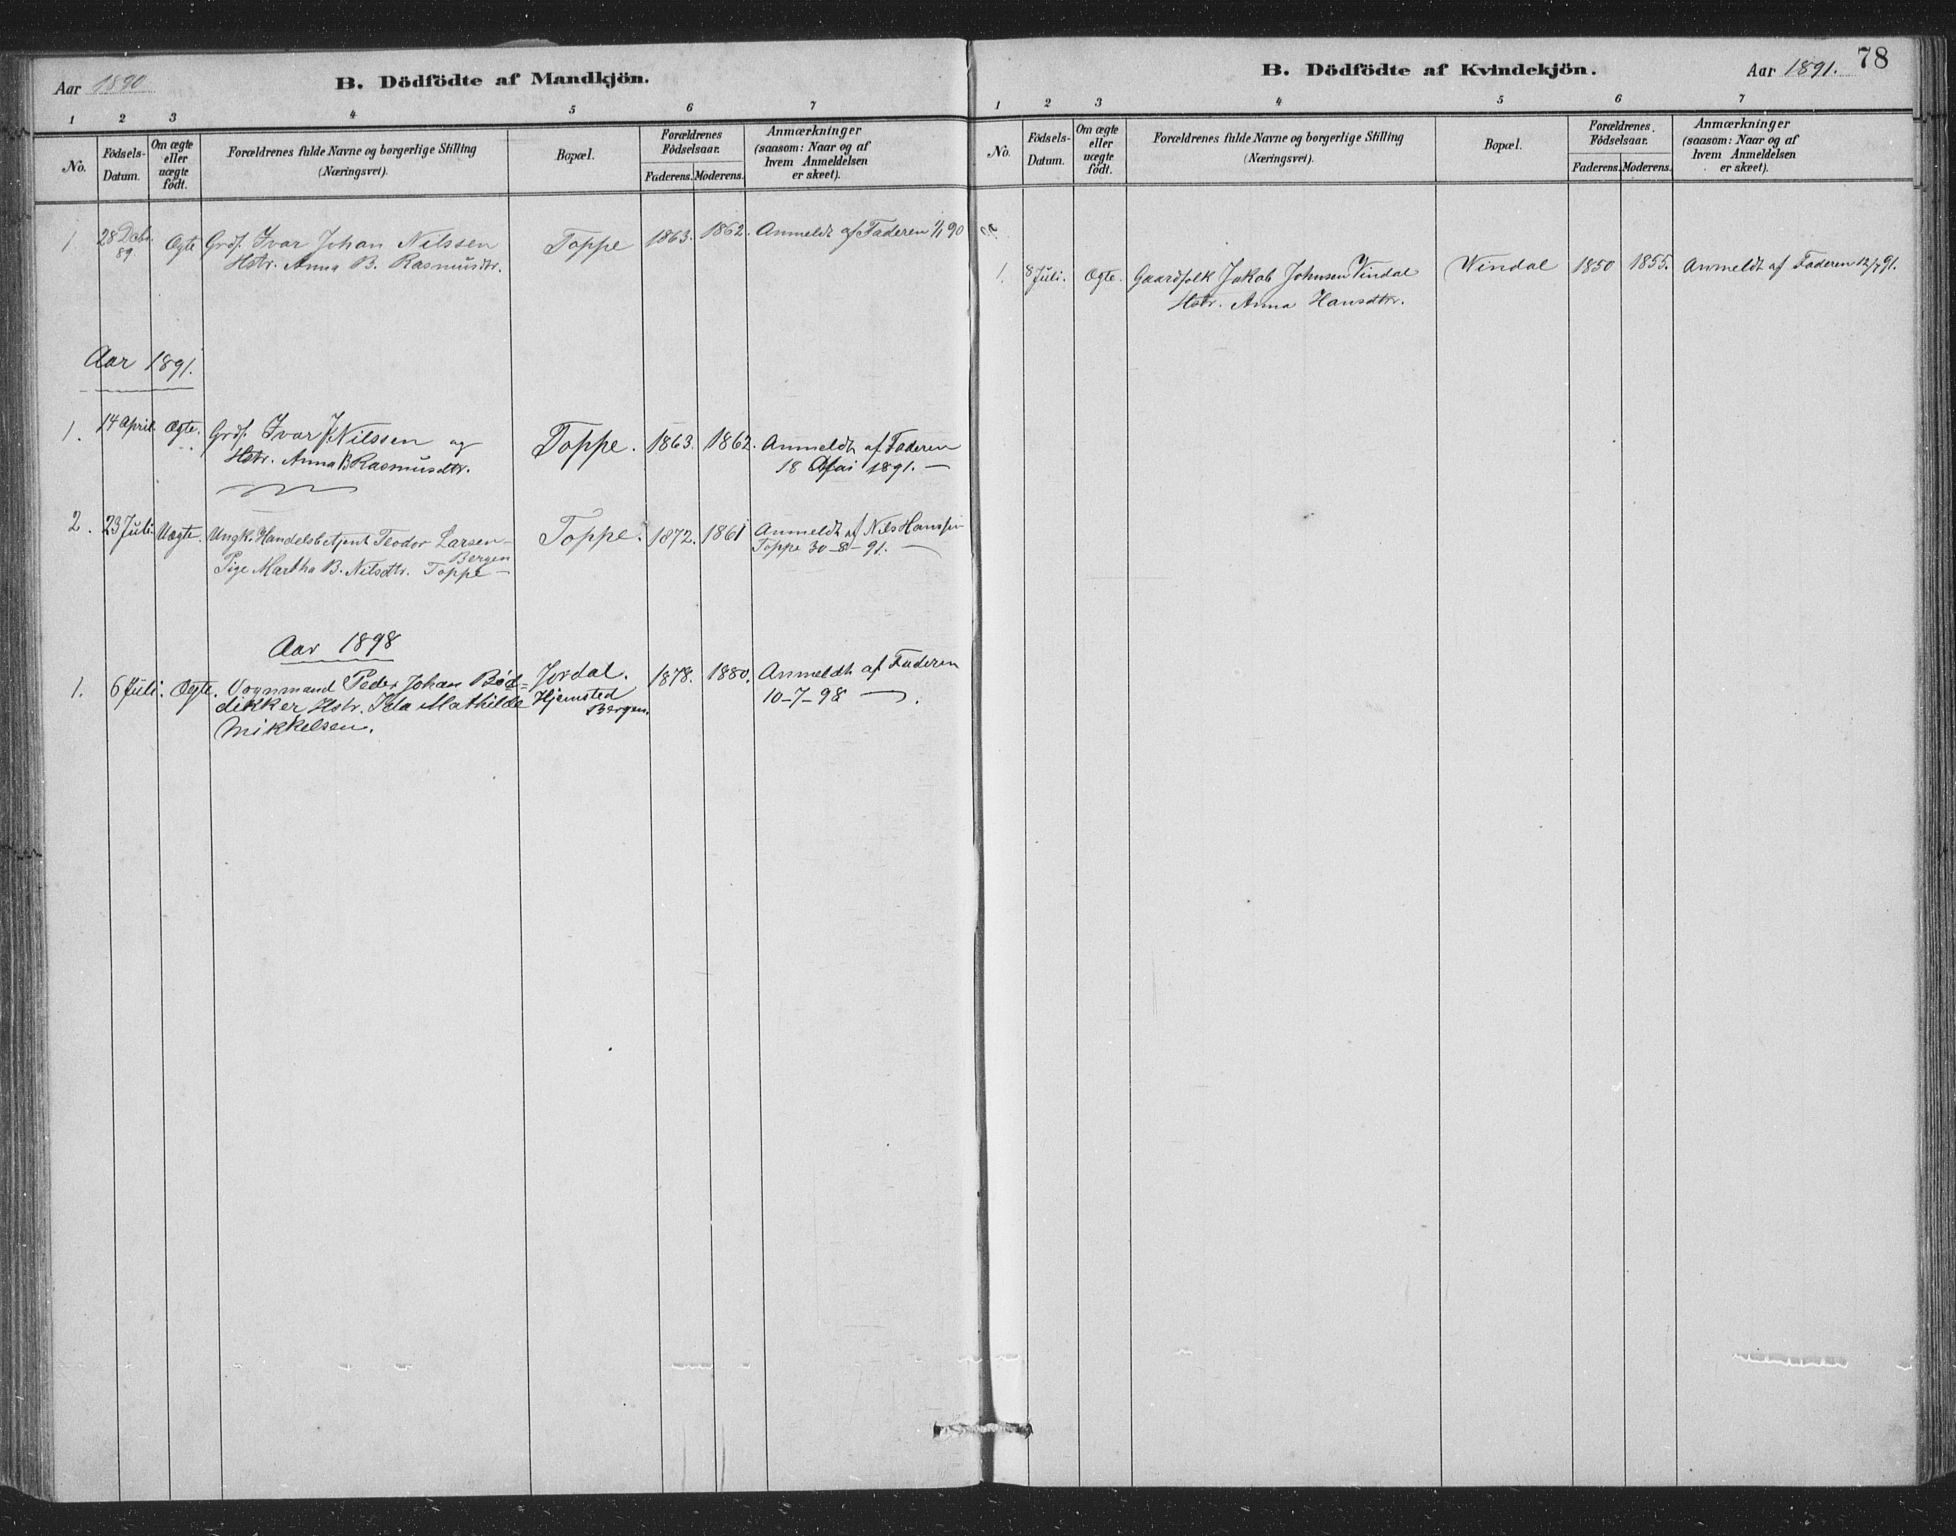 Aar 1890
B. Dödfödte af Mandkjön.
1 2 3 4 5 6 7
No.
Födsels-
Datum.
Om ægte
eller
uægte
födt.
Forældrenes fulde Navne og borgerlige Stilling
(Næringsvei).
Bopæl.
Forældrenes
Födselsaar.
Faderens. Moderens.
Anmærkninger
(saasom: Naar og af
hvem Anmeldelsen
er skeet).
1. 28 Decbr. Ægte Grdf. Ivar Johan Nilssen Toppe 1863. 1862. Anmeldt af Faderen 1/1 90
89 Hstr. Anna B. Rasmusdtr.
Aar 1891.
1. 14 April. Ægte. Grdf. Ivar J. Nilssen og Toppe. 1863. 1862. Anmeldt af Faderen
Hstr. Anna B Rasmusdtr. 18 Mai 1891. —
2. 23 Juli. Uægte. Ungk. Handelsbetjent Teodor Larsen Toppe. 1872. 1861 Anmeldt af Nils Hanssen
Bergen Toppe 30-8-91. —
Pige Martha B. Nilsdtr. Toppe —
Aar 1898
1. 6 Juli. Ægte. Vognmand Peder Johan Bød= Jordal. 1878. 1880. Anmeldt af Faderen
dikker Hstr. Ida Mathilde Hjemsted 10-7-98 — .
Mikkelsen. Bergen.
B. Dödfödte af Kvindekjön.
Aar 1891.
78
1 2 3 4 5 6 7
No.
Födsels-
Datum.
Om ægte
eller
uægte
födt.
Forældrenes fulde Navne og borgerlige Stilling
(Næringsvei).
Bopæl.
Forældrenes
Födselsaar.
Faderens. Moderens.
Anmærkninger
(saasom: Naar og af
hvem Anmeldelsen
er skeet).
1. 8 Juli. Ægte. Gaardfolk Jakob Johnsen Vindal Windal 1850 1855. Anmeldt af Faderen 12/7 91.
Hstr. Anna Hansdtr.